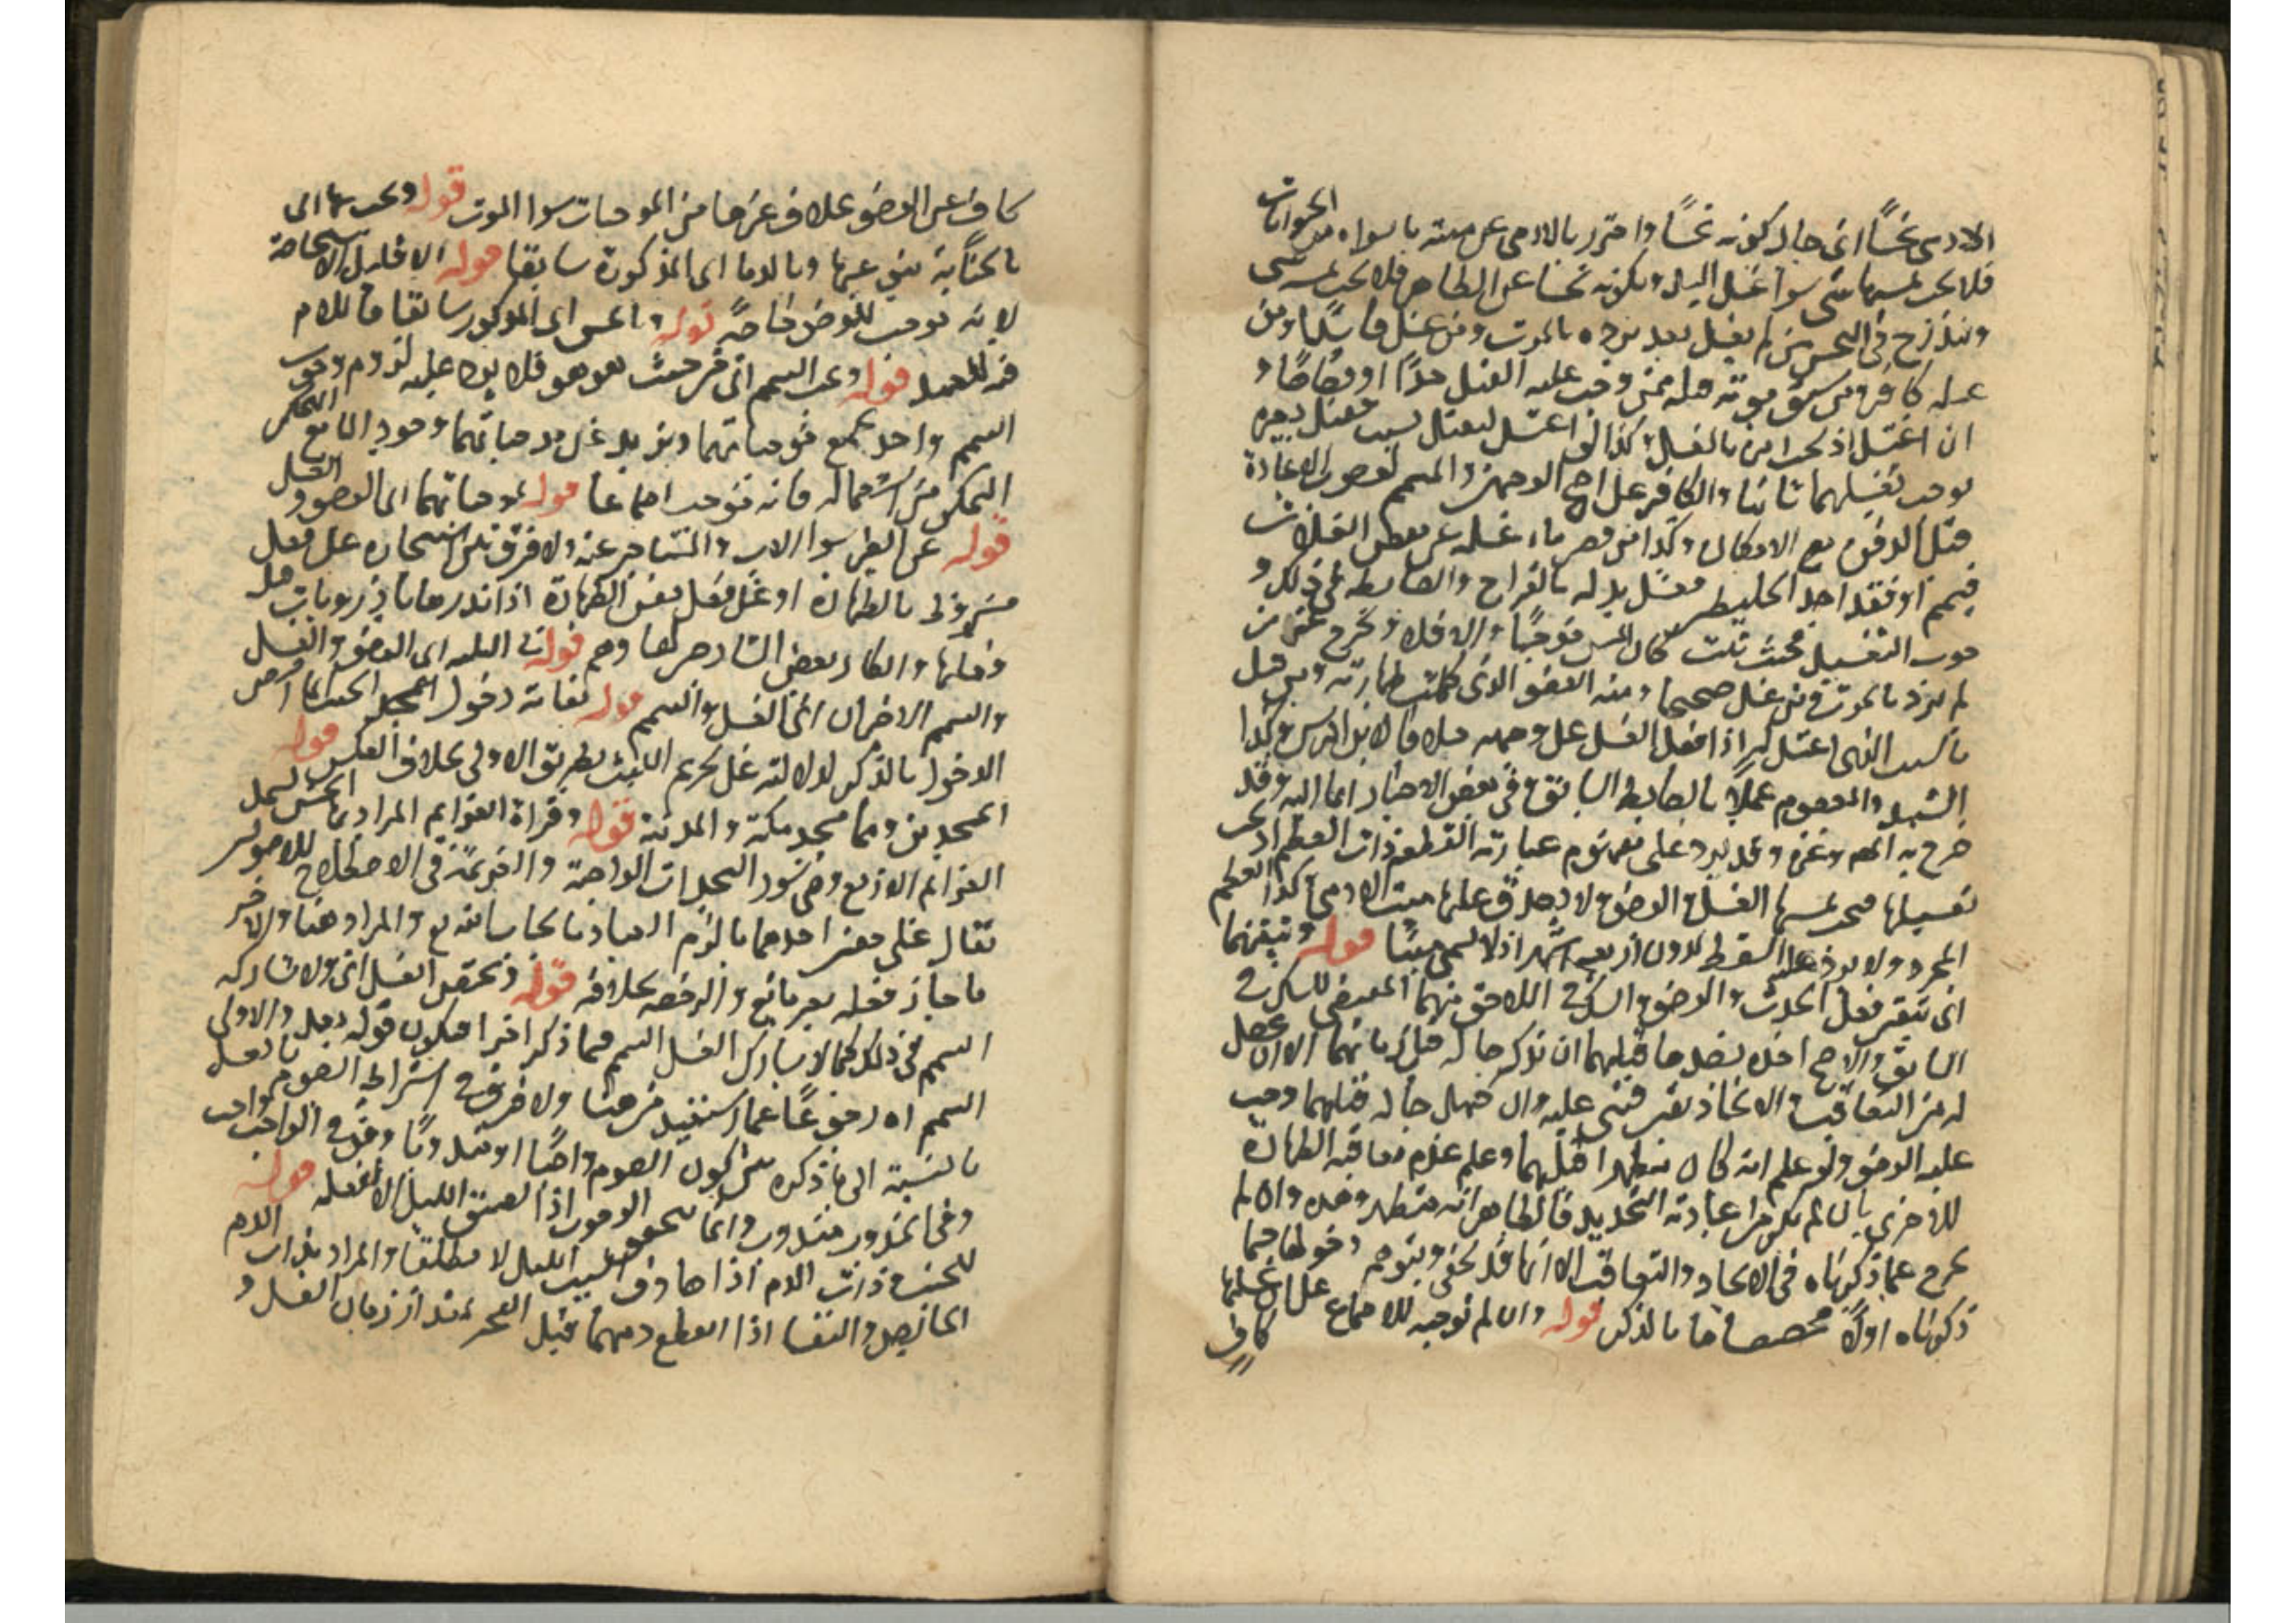 الادمى نجسًا اى حال كونه نجسًا واحترز بالادمى عن ميتة ما سواه من الحيوانات
فلا يجب بمسها شى سوا غسل اليد وبكونه نجسا عن الطاهر فلا يجب بمسه شى
ويندرج فى النجس من لم يغسل بعد برده بالموت ومن غسل فاسدًا ومن
غسله كافر ومن سبق موته قتله ممن وجب عليه الغسل حدًا او قصاصًا و
ان اغتسل اذ لحدا من بالغسل وكذا لو اغتسل ليقتل بسبب فقتل بغيره
يوجب تغسيلهما ثانيا والكافر على اصح الوجهين والميمم لوجوب الاعادة
قبل الدفن مع الامكان وكذا من قصر ماء غسله عن بعض الغسلات
فيمم او فقد احد الخليطين فغسل بدله بالقراح والضابطة فى ذلك و
جوب التغسيل فحيث ثبت كان المس موجبًا والا فلا وخرج عنه من
لم يبرد بالموت ومن غسل صحيحا ومنه العضو الذى كملت طهارته ومن قبل
بالسبب الذى اغتسل له اذا فعل الغسل على وجهه خلافا لابن ادريس وكذا
الشهيد والمعصوم عملًا بالضابط السابق وفى بعض الاخبار ايما اليه وقد
صرح به المص وغيره وقد يرد على مفهوم عبارته القطعة ذات العظم اذ يجب
تغسيلها فيجب بمسها الغسل والوضوء ولا يصدق عليها ميت الادمى وكذا العظم
المجرد ولا يرد عليه السقط لدون اربعة اشهر اذ لا يسمى ميتًا قوله وتيقنهما
اى تيقن فعل الحدث والوضوء والشك فى اللاحق منهما المقتضى للشك فى
السابق والاصح اخذه بضد ما قبلهما ان تذكر حاله قبل زمانهما الا ان يحصل
له من التعاقب والاتحاد يقين فيبنى عليه وان جهل حاله قبلهما وجب
عليه الوضوء ولو علم انه كان متطهرا قبلهما وعلم عدم تعاقب الطهارة
للاخرى بان لم يكن من عادته التجديد فالظاهر انه متطهر وهذه وان لم
تخرج عما ذكرناه فى الاتحاد والتعاقب الا انها قد تخفى ويتوهم دخولها فيما
ذكرناه اولًا فخصصناها بالذكر قوله وان لم نوجبه للاجماع على ان غسلها
كاف
كاف عن الوضوء بخلاف غيرها من الموجبات سوا الموت قوله ويجب بها الى
بالجنابة ينبئ عنها وبالدما اى المذكورة سابقا قوله الا قليل الاستحاضة
لانه يوجب للوضوء خاصةً قوله والمس اى المذكور سابقا فاللام
فيه للعهد قوله ويجب التيمم اى من حيث هو هو فلا يرد عليه لزوم وجوب
التيمم واحد بجميع موجباتهما ويزيد على موجباتهما وجود الماء مع التمكن
التمكن من استعماله فانه موجب اجماعا قوله بموجباتهما اى الوضوء و الغسل
قوله عن الغير سوا الاب والمستاجر عنه ولا فرق بين استيجاره على فعل
مشروط بالطهارة او على فعل نفس الطهارة اذا نذرها باذن وباب مثل
وفعلها وانكار بعض الشارحين لها وهم قوله الثلثة اى الوضوء والغسل
والتيمم الاخيران اى الغسل والتيمم قوله لغاية دخول المسجد الحتم انما خص
الدخول بالذكر لدلالته على تحريم اللبث بطريق الاولى بخلاف العكس قوله
المسجدين وهما مسجد مكة والمدينة قوله وقراة العزايم المراد بها
العزايم الاربع وهى سور السجدات الواجبة والعزيمة فى الاصطلاح للاصولين
تقال على معنيين احدهما ما لزم العباد بايجاب الله تع والمراد هنا والاخر
ما جاز فعله بغير مانع والرخصة بخلافه قوله ويختص الغسل اى ولا يشاركه
التيمم فى ذلك كما لا يشارك الغسل التيمم فيما ذكر اخيرا فيكون قوله بعد والاولى
التيمم اه رجوعًا عما استفيد من هنا ولا فرق فى اشتراط الصوم بالغسل
بالنسبة الى ما ذكره بين كون الصوم واجبًا او مندوبًا وهو فى الواجب واجب
وفى المندوب مندوب وانما يتحقق الوجوب اذا تضيق الليل الا لفعله قوله
للجنب وذات الدم اذا صادف تضييق الليل لا مطلقًا والمراد بذات الدم
الحائض والنفسا اذا انقطع دمهما قبل الفجر بمقدار زمان الغسل و